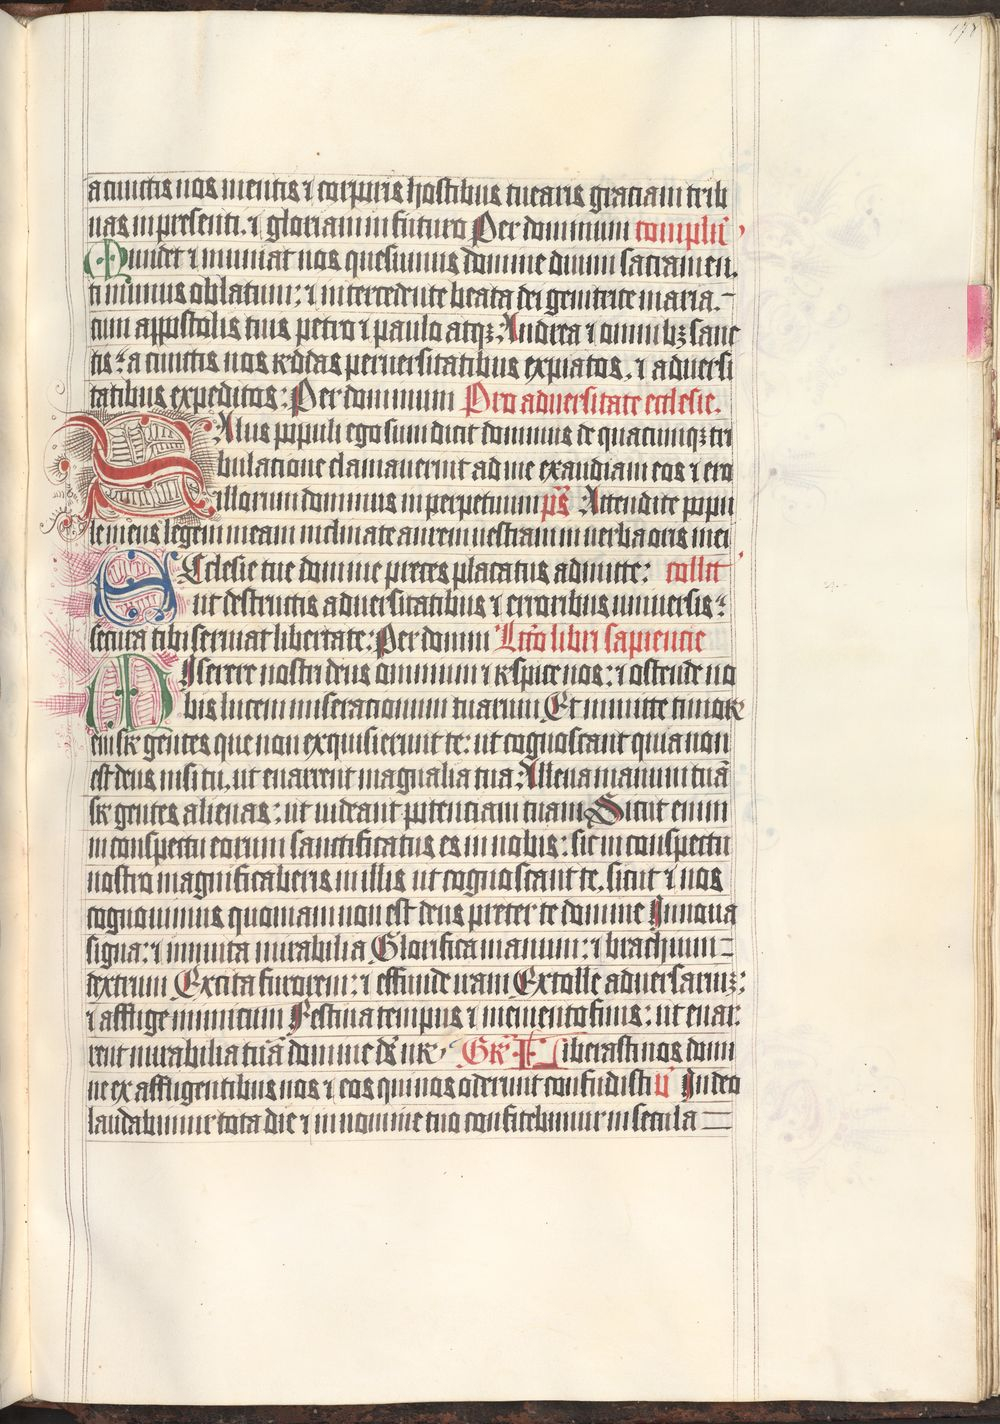 178
a cunctis nos mentis ⁊ corporis hostibus tuearis graciam trib
uas in presenti. ⁊ gloriam in futuro Per dominum complen̄
Mundet ⁊ muniat nos quesumus domine diuini sacramen.
ti munus oblatum: ⁊ intercedente beata dei genitrice maria.
cum appostolis tuis petro ⁊ paulo atqꝫ Andrea ⁊ omnibꝫ sanc
tis: a cunctis nos reddas peruersitatibus expiatos. ⁊ aduersi
tatibus expeditos: Per dominum Pro aduersitate ecclesie.
SAlus populi ego sum dicit dominus de quacumqꝫ tri
bulacione clamauerint ad me exaudiam eos ⁊ ero
illorum dominus in perpetuum p̄s Attendite popu
le meus legem meam inclinate aurem vestram in verba oris mei
ECclesie tue domine preces placatus admitte: coll̄
ut destructis aduersitatibus ⁊ erroribus uniuersis:
secura tibi seruiat libertate: Per domin Lc̄o libri sapiencie
MIserere nostri deus omnium ⁊ respice nos: ⁊ ostende no
bis lucem miseracionum tuarum Et inmitte timore
em sr gentes que non exquisierunt te: ut cognoscant quia non
est deus nisi tu. ut enarrent magnalia tua: Alleua manum tuā
sr gentes alienas: ut uideant potenciam tuam Sicut enim
in conspectu eorum sanctificatus es in nobis: sic in conspectu
nostro magnificaberis in illis ut cognoscant te. sicut ⁊ nos
cognouimus quoniam non est deus preter te domine Innoua
signa: ⁊ inmuta mirabilia Glorifica manum: ⁊ brachium
dextrum Excita furorem: ⁊ effunde iram Extolle aduersariuꝫ:
⁊ afflige inimicum Festina tempus ⁊ memento finis: ut enar.
rent mirabilia tuā domine dē nr. Gr̄ Liberasti nos domi
ne ex affligentibus nos ⁊ eos qui nos oderunt confudisti v̄ In deo
laudabimur tota die ⁊ in nomine tuo confitebimur in secula